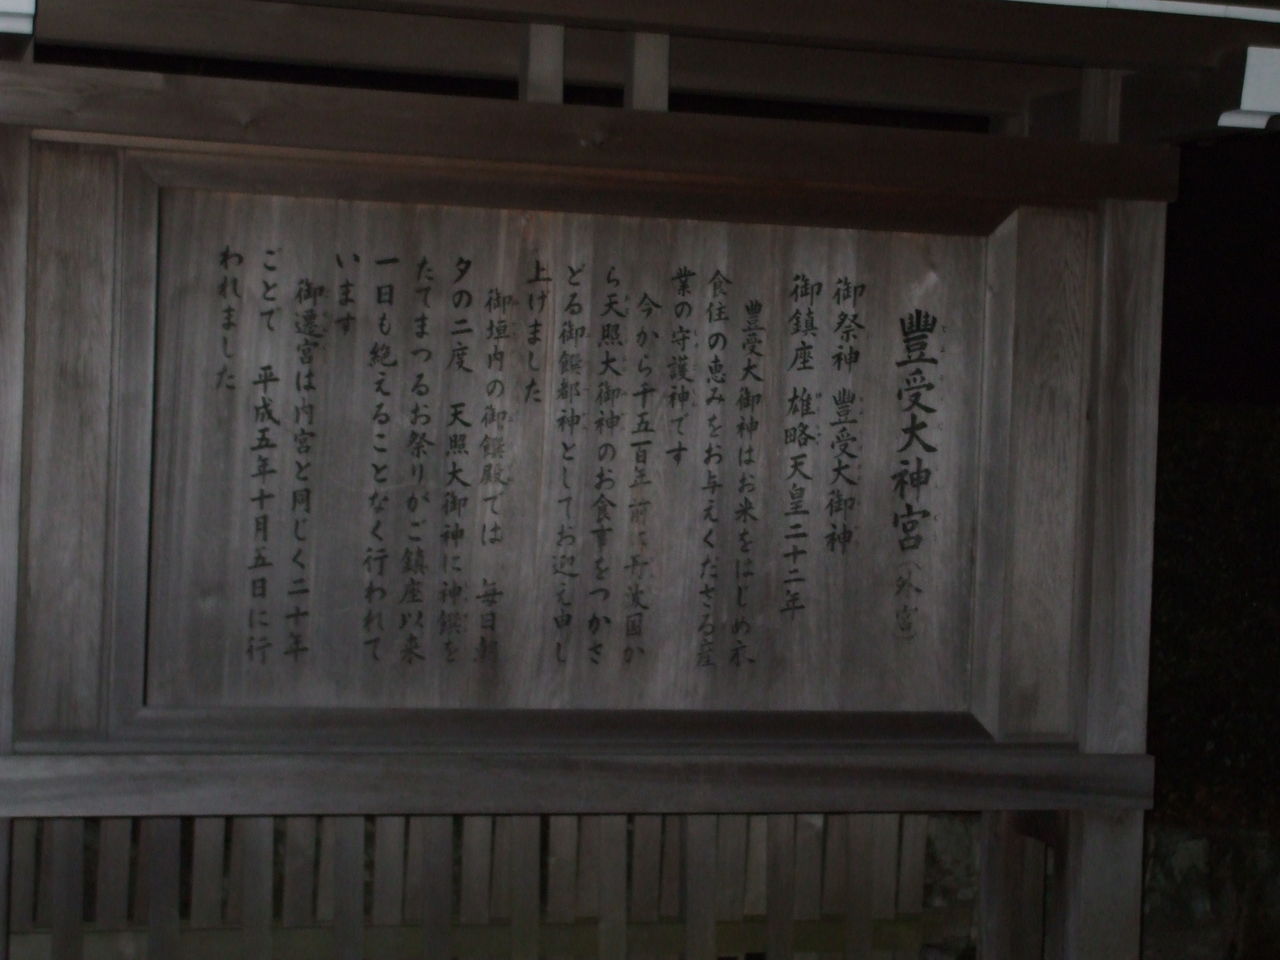 豐受大神宮（外宮）
御祭神 豐受大御神
御鎮座 雄略天皇二十二年
豐受大御神はお米をはじめ衣
食住の恵みをお与えくださる産
業の守護神です
今から千五百年前に丹波国か
ら天照大御神のお食事をつかさ
どる御饌都神としてお迎え申し
上げました
御垣内の御饌殿では 毎日朝
夕の二度 天照大御神に神饌を
たてまつるお祭りがご鎮座以来
一日も絶えることなく行われて
います
御遷宮は内宮と同じく二十年
ごとで 平成五年十月五日に行
われました